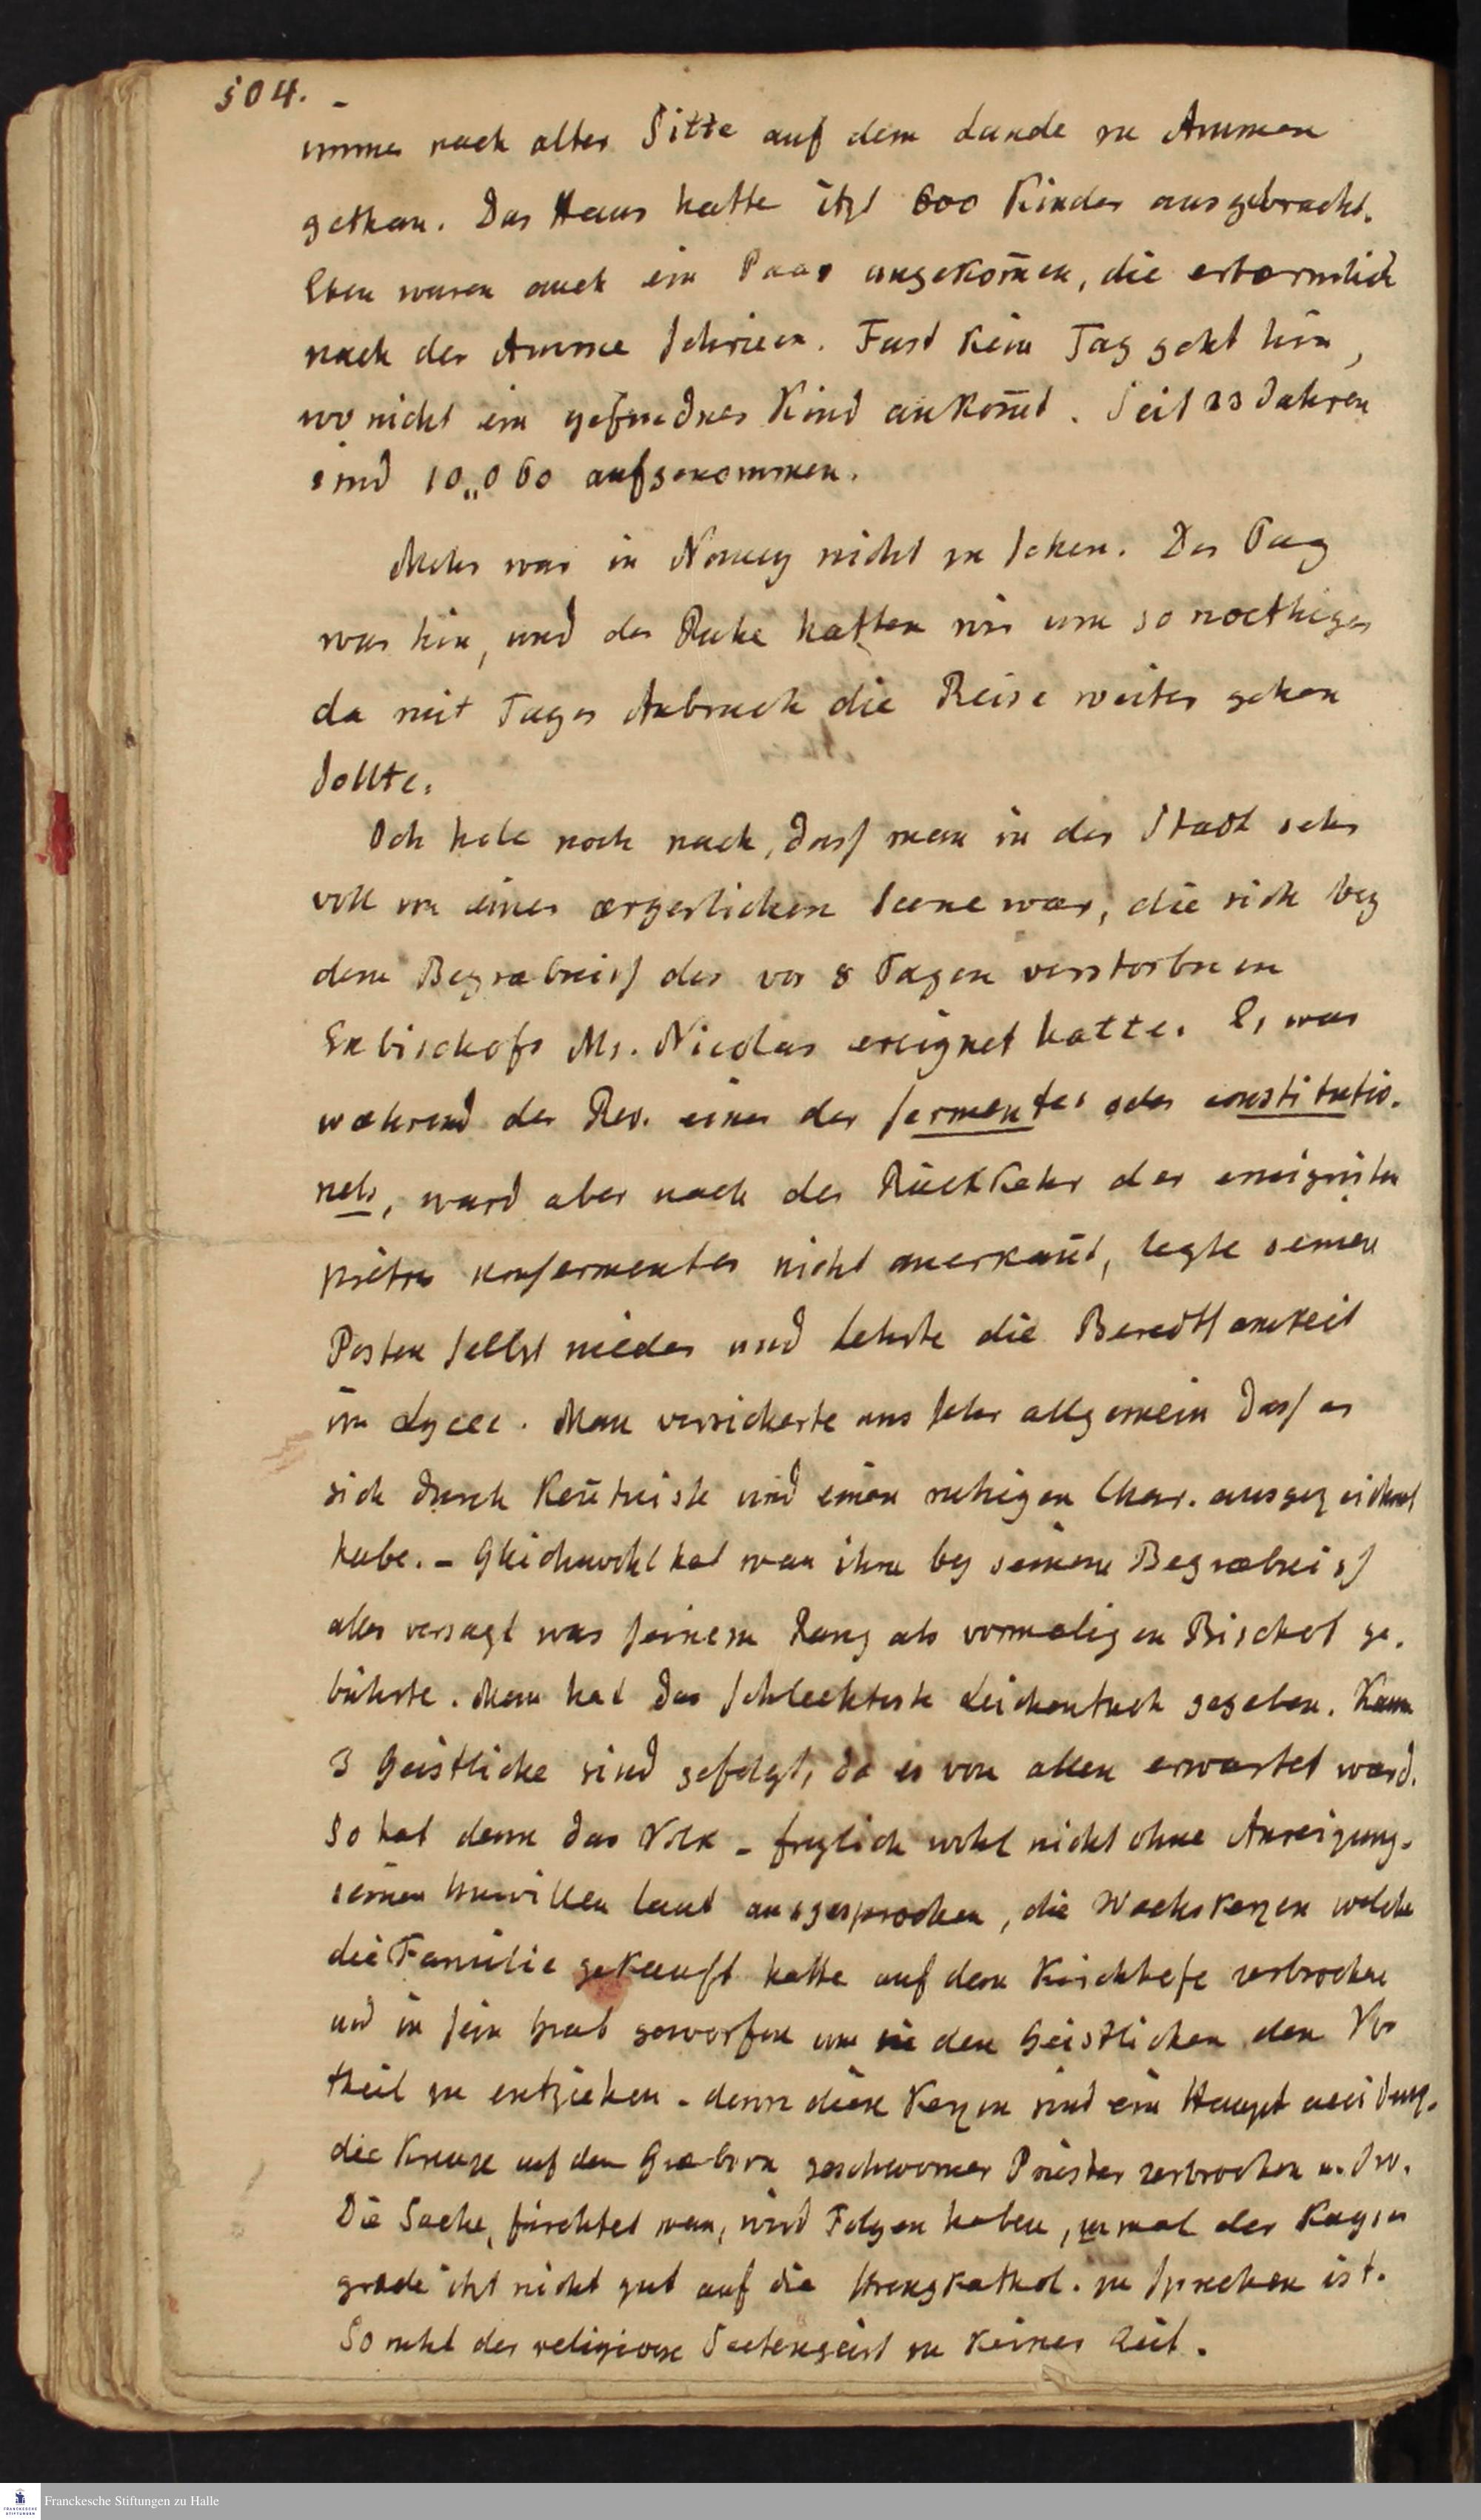 504. -
immer nach alter Sitte auf dem Lande zu Ammen
gethan. Das Haus hatte itzt 600 Kinder ausgebracht.
Eben waren auch ein Paar angekom̄en, die erbærmlich
nach der Amme schrieen. Fast kein Tag geht hin,
wo nicht ein gefundnes Kind ankom̄t. Seit 23 Jahren
sind 10,,060 aufgenommen.
Mehr war in Nancy nicht zu sehen. Der Tag
war hin, und der Ruhe hatten wir um so noethiger
da mit Tages Anbruch die Reise weiter gehen
sollte.
Ich hole noch nach, dass man in der Stadt sehr
voll von einer ærgerlichen Scene war, die sich bey
dem Begræbniss des vor 8 Tagen verstorbnen
Exbischofs Mr. Nicolas ereignet hatte. Es war
während der Rev. einer der sermentes oder constitutio-
nels, ward aber nach der Rückkehr der emigrirten
prètres unsermentes nicht anerkan̄t, legte seinen
Posten selbst nieder und lehrte die Beredtsamkeit
im Lycee. Man versicherte uns sehr allgemein dass er
sich durch Ken̄tnisse und einen ruhigen Char. ausgezeichnet
habe. - Gleichwohl hat man ihm bey seinem Begræbniss
alles versagt was seinem Rang als vormaligen Bischof ge-
bührte. Man hat das schlechteste Leichentuch gegeben. Kaum
3 Geistliche sind gefolgt, da es von allen erwartet ward.
So hat denn das Volk - freylich wohl nicht ohne Anreizung -
seinen Unwillen laut ausgesprochen, die Wachskerzen welche
die Familie gekauft hatte auf dem Kirchhofe zerbrochen
und in sein Grab geworfen um sie den Geistlichen den Vor
theil zu entziehen - denn diese Kerzen sind ein Haupt
die Kreuze auf den Græbern geschworner Priester zerbrochen u. s w.
Die Sache, fürchtet man, wird Folgen haben, zumal der Kayser
grade itzt nicht gut auf die strengkathol. zu sprechen ist.
So ruht der religioese Sectengeist zu keiner Zeit.
Franckesche Stiftungen zu Halle